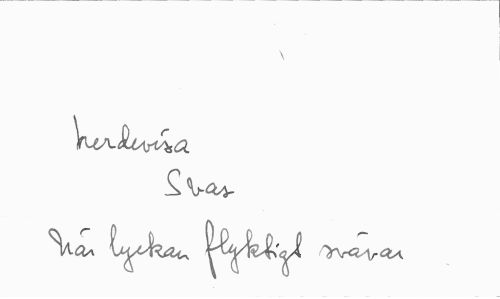 herdevisa
Svar
När lyckan flyktigt svävar